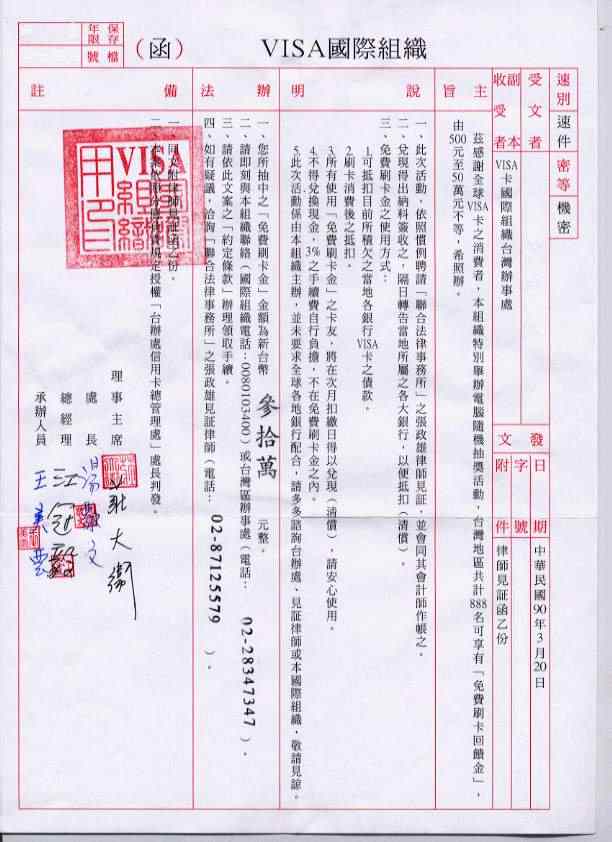 保存年限
檔號
VISA國際組織
(函)
速別
速件
密等
機密
受文者
副本收受者
VISA卡國際組織台灣辦事處
發文
日期
中華民國90年3月20日
字號
附件
律師見証函乙份
主旨
茲感謝全球VISA卡之消費者,本組織特別舉辦電腦隨機抽獎活動,台灣地區共計888名可享有「免費刷卡回饋金」,
由500元至50萬元不等,希照辦。
說明
一、此次活動,依照慣例聘請「聯合法律事務所」之張政雄律師見証,並會同其會計師作帳之。
二、兌現得出納料簽收之,隔日轉告當地所屬之各大銀行,以便抵扣(清償)。
三、免費刷卡金之使用方式:
1.可抵扣目前所積欠之當地各銀行VISA卡之債款。
2.刷卡消費後之抵扣。
3.所有使用「免費刷卡金」之卡友,將在次月扣繳日得以兌現(清償),請安心使用。
4.不得兌換現金,3%之手續費自行負擔,不在免費刷卡金之內。
5.此次活動係由本組織主辦,並未要求全球各地銀行配合,請多多諮詢台辦處、見証律師或本國際組織,敬請見諒。
辦法
一、您所抽中之「免費刷卡金」金額為新台幣 參拾萬 元整。
二、請即刻與本組織聯絡(國際組織電話:0080103400)或台灣區辦事處(電話: 02-28347347 )。
三、請依此文案之「約定條款」辦理領取手續。
四、如有疑議,洽詢「聯合法律事務所」之張政雄見証律師(電話: 02-87125579 )。
備註
一、同文附律師見証函乙份。
授權「台辦處信用卡總管理處」處長判發。
VISA
理事主席
處長
總經理
承辦人員